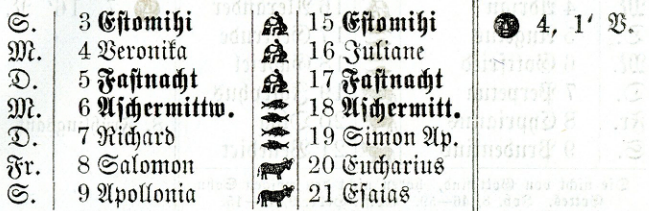 S. 3 Estomihi 15 Estomihi 4, 1' V.
M. 4 Veronika 16 Juliane
D. 5 Fastnacht 17 Fastnacht
M. 6 Aschermittw. 18 Aschermitt.
D. 7 Richard 19 Simon Ap.
Fr. 8 Salomon 20 Eucharius
S. 9 Apollonia 21 Esaias